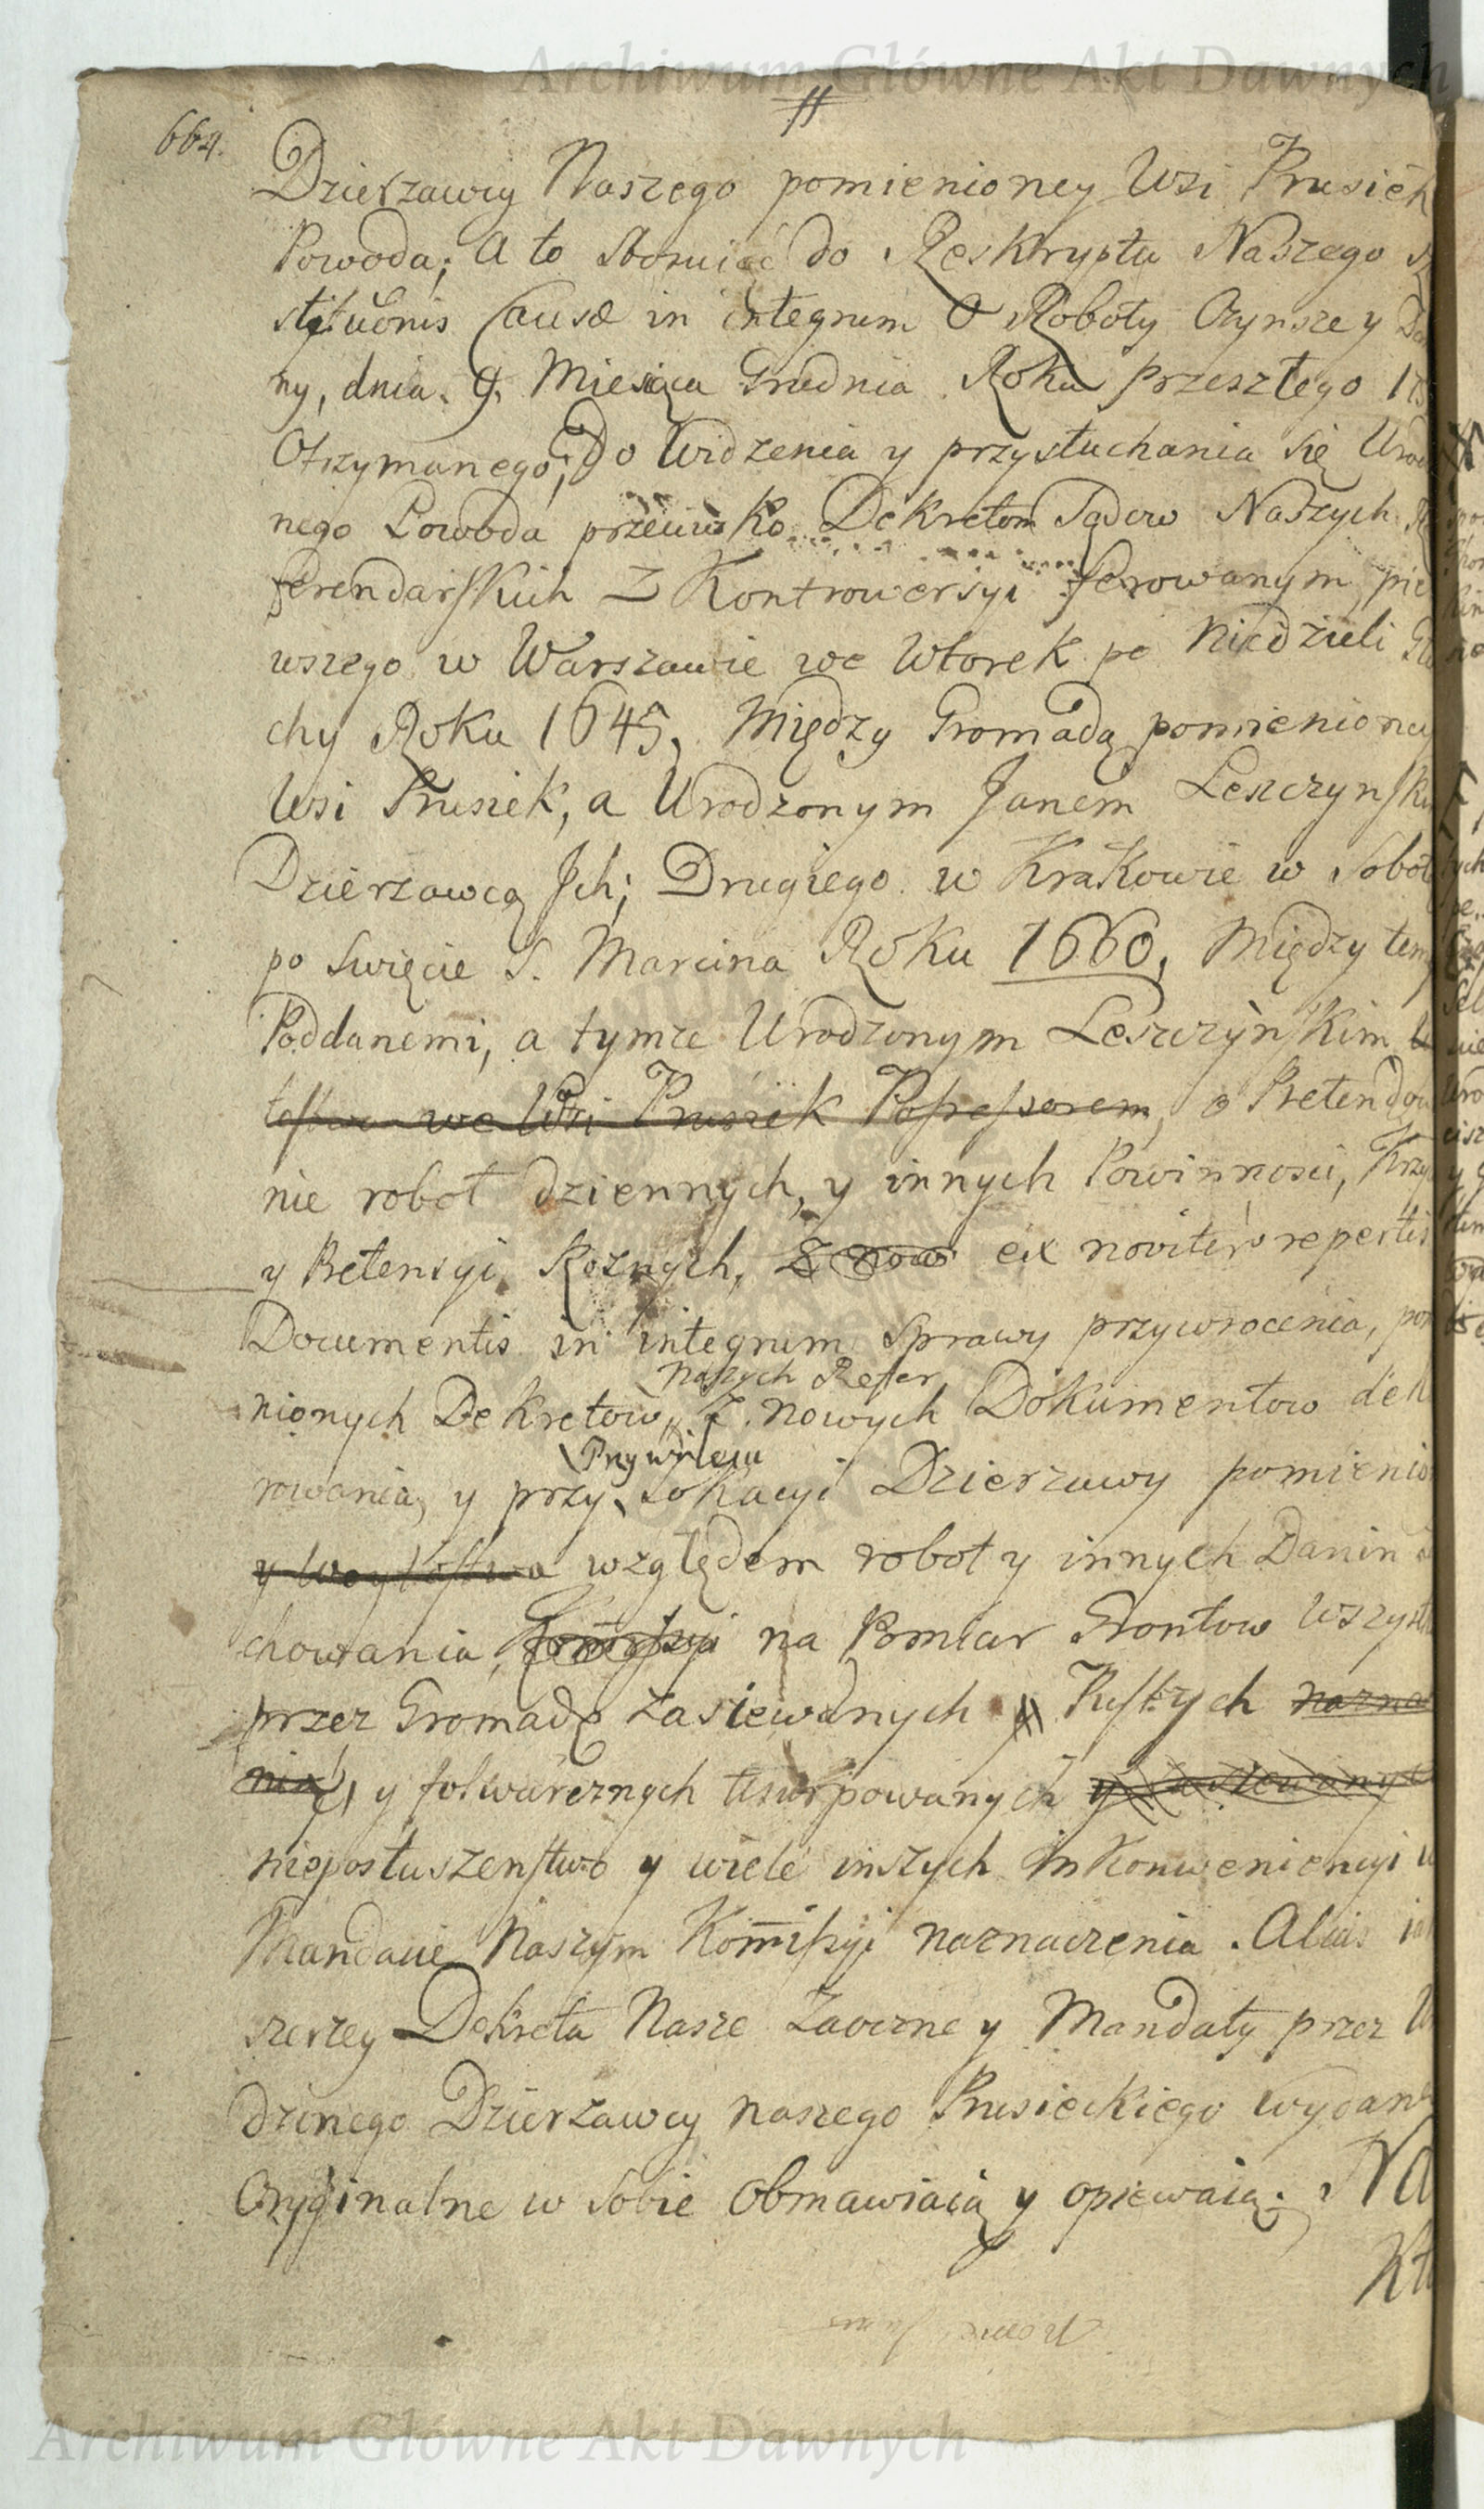 Archiwum Główne Akt Dawnych
664.
Dzierzawcy Naszego pomienioney Wsi Prusiek
Powoda; A to Stosuiąc do Reskryptu Naszego
stitutionis Causæ in integrum O Roboty Czynsze y
ny, dnia. 9. Miesiąca Grudnia Roku przeszłego
Otrzymanego; Do Widzenia y przysłuchania się
nego Powoda przeciwko Dekretom Sądow Naszych
ferendarskich z Kontrowersyi ferowanym, pie
wszego w Warszawie we Wtorek po Niedzieli
chy Roku 1645, Między Gromadą pomienioney
Wsi Prusiek, a Urodzonym Janem Leszczynski
Dzierzawcą Jch; Drugiego w Krakowie w Sobot
po Swięcie S. Marcina Roku 1660, Między tem
Poddanemi, a tymze Urodzonym Leszczynskim
we Wsi Prusiek Possessorem, o Pretendo
nie robot dziennych, y innych Powinnosci, Krzy
y Pretensyi Roznych, Z now ex noviter repertis
Documentis in integrum Sprawy przywrocenia, pom
Naszych Refer
nionych Dekretow, z nowych Dokumentow dek
Przywileiu
rowania, y przy Lokacyi Dzierzawy pomienio
y Woytostwa względem robot y innych Danin
chowania, Kommissyi na Pomiar Grontow Wszyst
przez Gromadę zasiewanych y Pustych nazna
nia, y folwarcznych Usurpowanych y zasiewanych
nieposłuszenstwo y wiele inszych Inkonweniencyi w
Mandacie Naszym Kommissyi naznaczenia. Alias
szerzey Dekreta Nasze Zaoczne y Mandaty przez
dzonego Dzierzawcy naszego Prusieckiego wydane
Oryginalne w Sobie obmawiaią y opiewaią. Na
Kto
Archiwum Główne Akt Dawnych